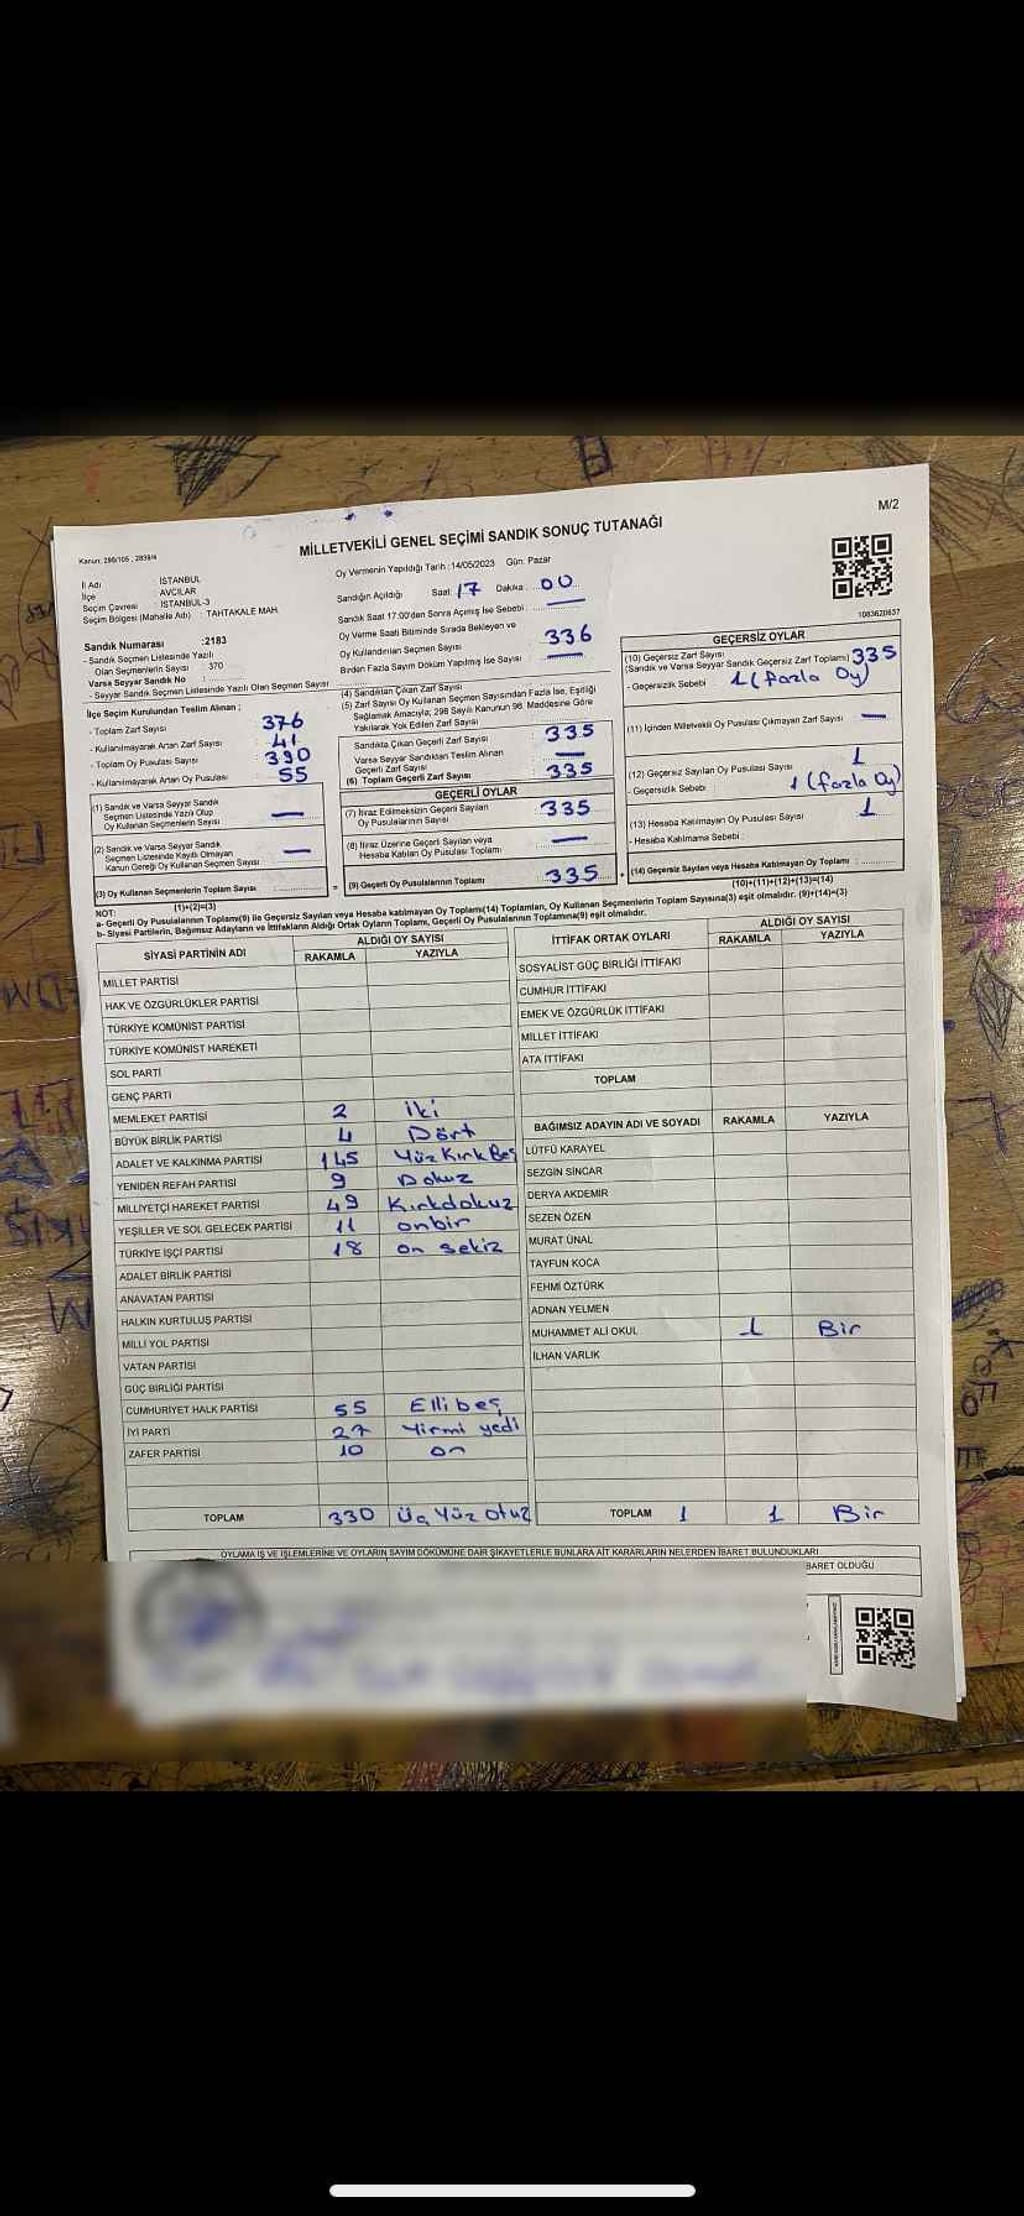 M/2
Kanun: 298/105, 2839/4
MİLLETVEKİLİ GENEL SEÇİMİ SANDIK SONUÇ TUTANAĞI
İl Adı : İSTANBUL
İlçe : AVCILAR
Seçim Çevresi : İSTANBUL-3
Seçim Bölgesi (Mahalle Adı) : TAHTAKALE MAH.
Sandık Numarası :2183
- Sandık Seçmen Listesinde Yazılı
Olan Seçmenlerin Sayısı : 370
Varsa Seyyar Sandık No :
- Seyyar Sandık Seçmen Listesinde Yazılı Olan Seçmen Sayısı
Oy Vermenin Yapıldığı Tarih :14/05/2023 Gün: Pazar
Sandığın Açıldığı Saat 17 Dakika 00
Sandık Saat 17:00'den Sonra Açılmış İse Sebebi : —
Oy Verme Saati Bitiminde Sırada Bekleyen ve
Oy Kullandırılan Seçmen Sayısı 336
Birden Fazla Sayım Döküm Yapılmış İse Sayısı —
1083620657
İlçe Seçim Kurulundan Teslim Alınan ;
- Toplam Zarf Sayısı 376
- Kullanılmayarak Artan Zarf Sayısı 41
- Toplam Oy Pusulası Sayısı 390
- Kullanılmayarak Artan Oy Pusulası 55
(1) Sandık ve Varsa Seyyar Sandık
Seçmen Listesinde Yazılı Olup
Oy Kullanan Seçmenlerin Sayısı —
(2) Sandık ve Varsa Seyyar Sandık
Seçmen Listesinde Kayıtlı Olmayan
Kanun Gereği Oy Kullanan Seçmen Sayısı —
(3) Oy Kullanan Seçmenlerin Toplam Sayısı
(1)+(2)=(3)
(4) Sandıktan Çıkan Zarf Sayısı
(5) Zarf Sayısı Oy Kullanan Seçmen Sayısından Fazla İse, Eşitliği
Sağlamak Amacıyla; 298 Sayılı Kanunun 98. Maddesine Göre
Yakılarak Yok Edilen Zarf Sayısı
Sandıkta Çıkan Geçerli Zarf Sayısı : 335
Varsa Seyyar Sandıktan Teslim Alınan
Geçerli Zarf Sayısı —
(6) Toplam Geçerli Zarf Sayısı : 335
GEÇERLİ OYLAR
(7) İtiraz Edilmeksizin Geçerli Sayılan
Oy Pusulalarının Sayısı : 335
(8) İtiraz Üzerine Geçerli Sayılan veya
Hesaba Katılan Oy Pusulası Toplamı —
= (9) Geçerli Oy Pusulalarının Toplamı : 335
GEÇERSİZ OYLAR
(10) Geçersiz Zarf Sayısı
(Sandık ve Varsa Seyyar Sandık Geçersiz Zarf Toplamı) 335
- Geçersizlik Sebebi 1 (fazla Oy)
(11) İçinden Milletvekili Oy Pusulası Çıkmayan Zarf Sayısı —
(12) Geçersiz Sayılan Oy Pusulası Sayısı 1
- Geçersizlik Sebebi 1 (fazla Oy)
(13) Hesaba Katılmayan Oy Pusulası Sayısı 1
- Hesaba Katılmama Sebebi :
+ (14) Geçersiz Sayılan veya Hesaba Katılmayan Oy Toplamı :
(10)+(11)+(12)+(13)=(14)
NOT:
a- Geçerli Oy Pusulalarının Toplamı(9) ile Geçersiz Sayılan veya Hesaba katılmayan Oy Toplamı(14) Toplamları, Oy Kullanan Seçmenlerin Toplam Sayısına(3) eşit olmalıdır. (9)+(14)=(3)
b- Siyasi Partilerin, Bağımsız Adayların ve İttifakların Aldığı Ortak Oyların Toplamı, Geçerli Oy Pusulalarının Toplamına(9) eşit olmalıdır.
SİYASİ PARTİNİN ADI ALDIĞI OY SAYISI
RAKAMLA YAZIYLA
MİLLET PARTİSİ
HAK VE ÖZGÜRLÜKLER PARTİSİ
TÜRKİYE KOMÜNİST PARTİSİ
TÜRKİYE KOMÜNİST HAREKETİ
SOL PARTİ
GENÇ PARTİ
MEMLEKET PARTİSİ 2 iki
BÜYÜK BİRLİK PARTİSİ 4 Dört
ADALET VE KALKINMA PARTİSİ 145 Yüz Kırk Beş
YENİDEN REFAH PARTİSİ 9 Dokuz
MİLLİYETÇİ HAREKET PARTİSİ 49 Kırkdokuz
YEŞİLLER VE SOL GELECEK PARTİSİ 11 onbir
TÜRKİYE İŞÇİ PARTİSİ 18 on sekiz
ADALET BİRLİK PARTİSİ
ANAVATAN PARTİSİ
HALKIN KURTULUŞ PARTİSİ
MİLLİ YOL PARTİSİ
VATAN PARTİSİ
GÜÇ BİRLİĞİ PARTİSİ
CUMHURİYET HALK PARTİSİ 55 Elli beş
İYİ PARTİ 27 Yirmi yedi
ZAFER PARTİSİ 10 on
TOPLAM 330 Üç Yüz Otuz
İTTİFAK ORTAK OYLARI ALDIĞI OY SAYISI
RAKAMLA YAZIYLA
SOSYALİST GÜÇ BİRLİĞİ İTTİFAKI
CUMHUR İTTİFAKI
EMEK VE ÖZGÜRLÜK İTTİFAKI
MİLLET İTTİFAKI
ATA İTTİFAKI
TOPLAM
BAĞIMSIZ ADAYIN ADI VE SOYADI RAKAMLA YAZIYLA
LÜTFÜ KARAYEL
SEZGİN SİNCAR
DERYA AKDEMİR
SEZEN ÖZEN
MURAT ÜNAL
TAYFUN KOCA
FEHMİ ÖZTÜRK
ADNAN YELMEN
MUHAMMET ALİ OKUL 1 Bir
İLHAN VARLIK
TOPLAM 1 1 Bir
OYLAMA İŞ VE İŞLEMLERİNE VE OYLARIN SAYIM DÖKÜMÜNE DAİR ŞİKAYETLERLE BUNLARA AİT KARARLARIN NELERDEN İBARET BULUNDUKLARI
BARET OLDUĞU